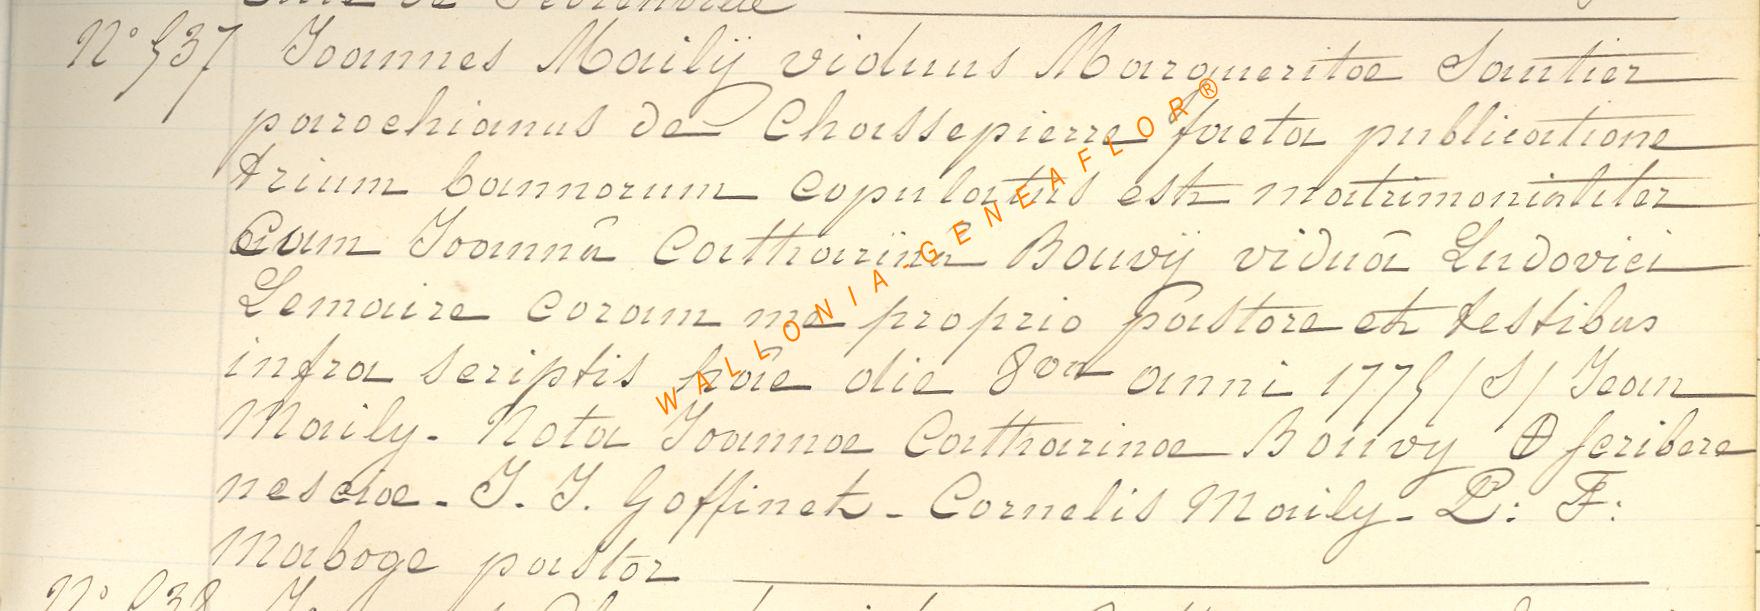 N° 537 Joannes Mailÿ viduus Margueritae Santier
parochianus de Chassepierre facta publicatione
trium bannorum copulatus est matrimonialiter
cum Joannâ Catharinâ Bouvÿ viduâ Ludovici
Lemaire coram me proprio pastore et testibus
infra scriptis hâc die 8va anni 1775 /S/ Jean
Maily. Nota Joannae Catharinae Bouvy ⊕ scribere
nesciae. J. J. Goffinet. Cornelis Maily. P: F:
Maboge pastor
N° 538
WALLONIA-GENEAFLOR®